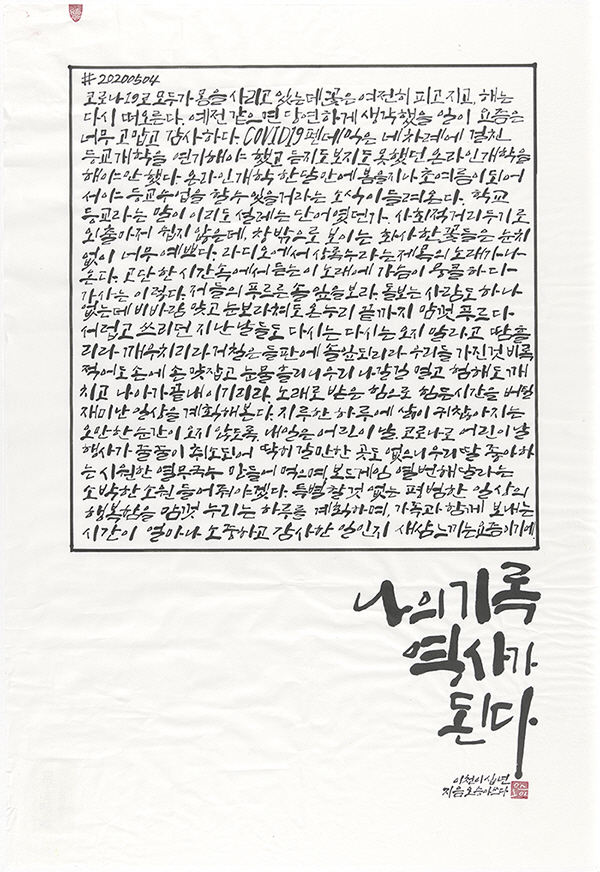 #20200504
코로나19로 모두가 몸을 사리고 있는데, 꽃은 여전히 피고지고, 해는
다시 떠오른다. 예전 같으면 당연하게 생각했을 일이 요즘은
너무 고맙고 감사하다. COVID19 펜데믹은 네 차례에 걸친
등교개학을 연기해야 했고 듣지도보지도 못했던 온라인개학을
해야만 했다. 온라인개학 한달만에 봄을지나 초여름이되어
서야 등교수업을 할수 있을거라는 소식이 들려온다. 학교
등교라는 말이 이리도 설레는 단어였던가. 사회적거리두기로
외출마저 쉽지 않은데, 창밖으로 보이는 화사한 꽃들은 눈치
없이 너무 예쁘다. 라디오에서 상록수라는 제목의 노래가 나
온다. 고단한 시간속에서 듣는 이 노래에 가슴이 뭉클하다-
가사는 이렇다. 저 들의 푸르른 솔잎을 보라. 돌보는 사람도 하나
없는데 비바람 맞고 눈보라쳐도 온누리 끝까지 맘껏 푸르다
서럽고 쓰리던 지난 날들도 다시는 다시는 오지 말라고 땀흘
리라 깨우치리라 거칠은 들판에 솔잎되리라 우리들 가진것 비록
적어도 손에 손 맞잡고 눈물 흘리니 우리 나갈길 멀고 험해도 깨
치고 나아가 끝내 이기리라. 노래로 받은 힘으로 힘든 시간을 버틸
재미난 일상을 계획해본다. 지루한 하루에 삶이 귀찮아지는
오만한 순간이 오지 않도록. 내일은 어린이 날. 코로나로 어린이날
행사가 줄줄이 취소되어 딱히 갈만한 곳도 없으니 우리딸 좋아하
는 시원한 열무국수 만들어 먹으며, 보드게임 열번해달라는
소박한 소원 들어줘야겠다. 특별할것 없는 평범한 일상의
행복함을 맘껏 누리는 하루를 계획하며, 가족과 함께 보내는
시간이 얼마나 소중하고 감사한 일인지 새삼 느끼는 요즘이기에
나의기록
역사가
된다
이천이십년
지음 오승아쓰다